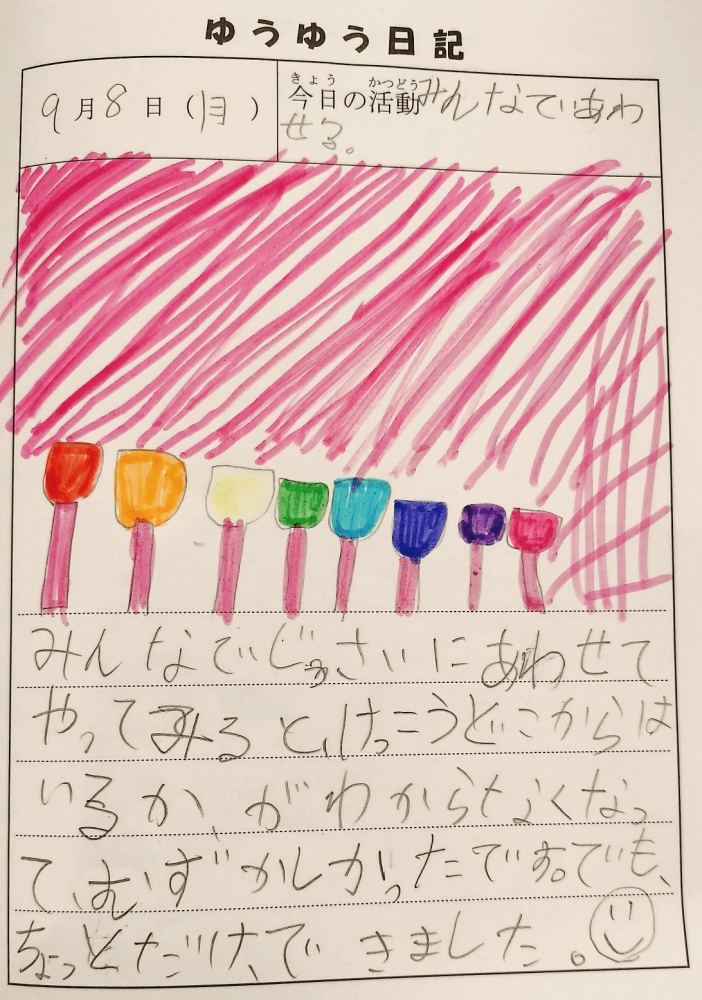 ゆうゆう日記
9月8日(月)
きょう かつどう
今日の活動みんなであわ
せる。
みんなでじっさいにあわせて
やってみると、けっこうどこからは
いるか、がわからなくなっ
て、むずかしかったです。でも、
ちょっとだけ、できました。